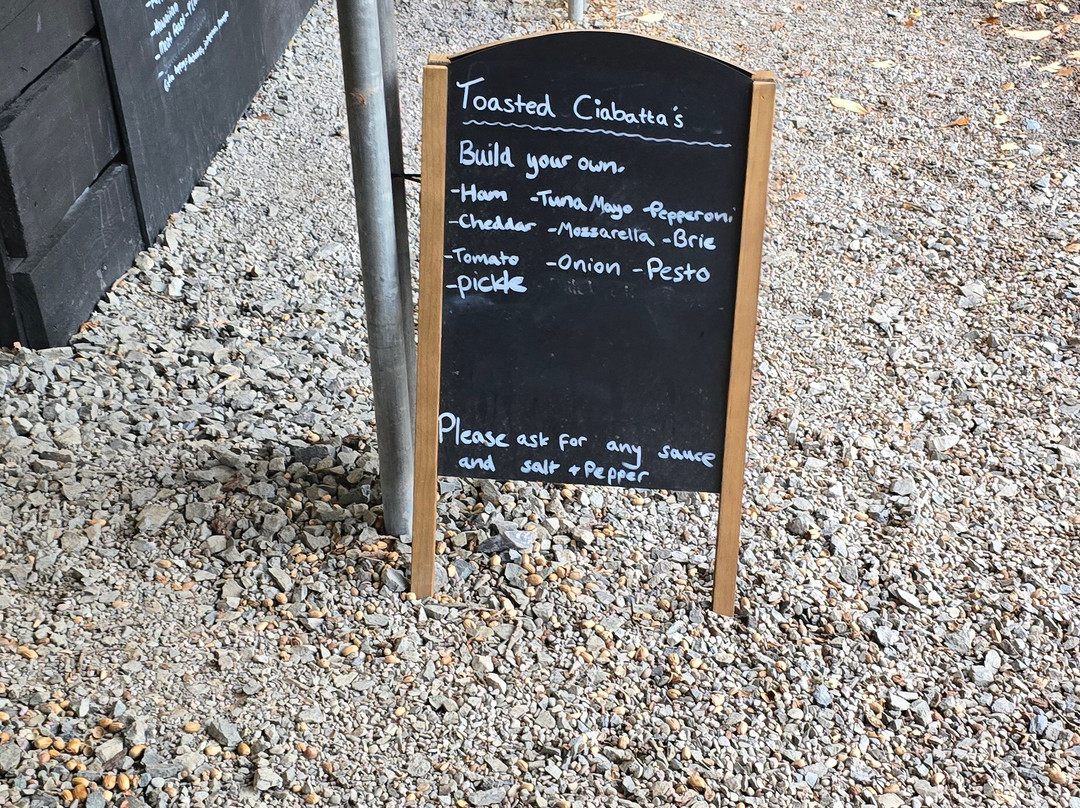 -Hawaiian
-Meat Feast
Toasted Ciabatta's
Build your own.
-Ham -Tuna Mayo -Pepperoni
-Cheddar -Mozzarella -Brie
-Tomato -Onion -Pesto
-pickle
Please ask for any sauce
and salt + Pepper